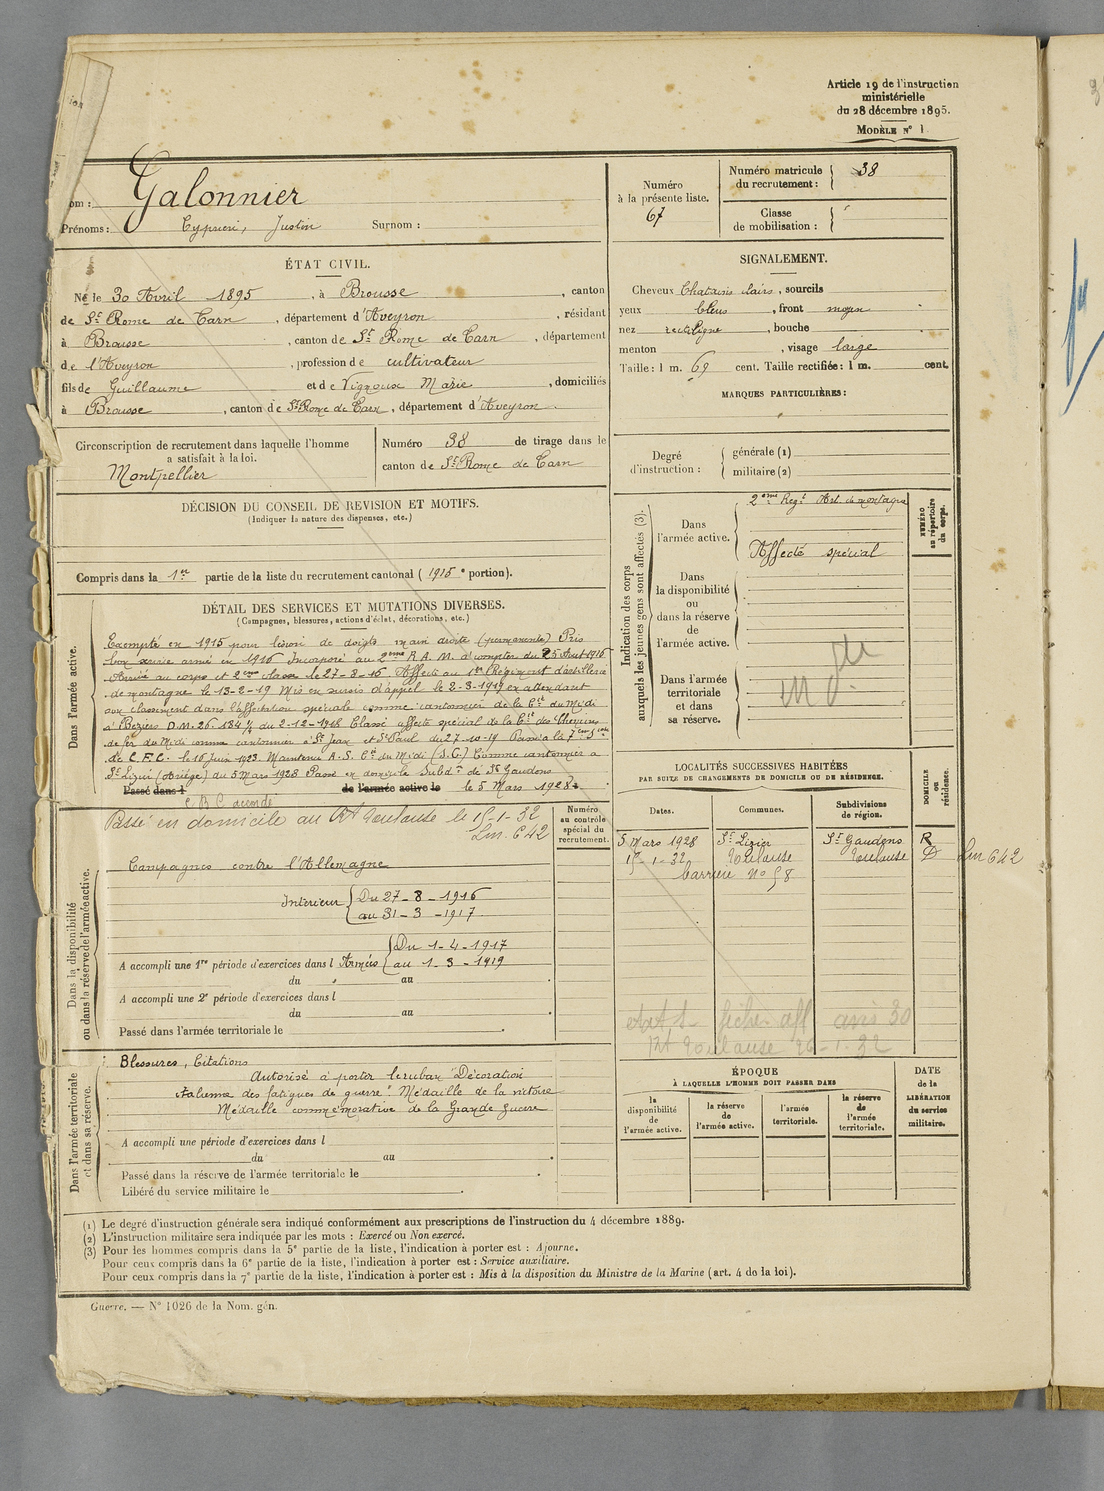 Article 19 de l'instruction
ministérielle
du 28 décembre 1895.
MODÈLE N° 1
ion
om : Galonnier
Prénoms : Cyprien, Justin Surnom :
ÉTAT CIVIL.
Né le 30 Avril 1895, à Brousse, canton
de St Rome de Tarn, département d'Aveyron, résidant
à Brousse, canton de St Rome de Tarn, département
de l'Aveyron, profession de cultivateur
fils de Guillaume et de Vignoux Marie, domiciliés
à Brousse, canton de St Rome de Tarn, département d'Aveyron.
Circonscription de recrutement dans laquelle l'homme
a satisfait à la loi.
Montpellier
Numéro 38 de tirage dans le
canton de St Rome de Tarn
DÉCISION DU CONSEIL DE REVISION ET MOTIFS.
(Indiquer la nature des dispenses, etc.)
Compris dans la 1re partie de la liste du recrutement cantonal (1915e portion).
DÉTAIL DES SERVICES ET MUTATIONS DIVERSES.
(Campagnes, blessures, actions d'éclat, décorations, etc.)
Dans l'armée active.
Exempté en 1915 pour lésion de doigts main droite (permanente) Pris
bon service armé en 1916 Incorporé au 2ème R.A.M. à compter du 25 Aout 1916
Arrivé au corps et 2eme classe le 27-8-16. Affecté au 1er Régiment d'artillerie
de montagne le 13-2-19 Mis en sursis d'appel le 2-3-1919 en attendant
son classement dans l'affectation spéciale comme cantonnier de la Cie du Midi
à Beziers D.M. 26.184 1/4 du 2-12-1918 Classé affecté spécial de la Cie des Chemins
de fer du Midi comme cantonnier à St Jean et St Paul du 27-10-19 Passé à la 7eme Son
de C.F.C. le 16 Juin 1923. Maintenu A.S. Cie du Midi (S.C.) Comme cantonnier à
St Lizier (Ariège) du 5 Mars 1928 Passé en domicile Subdon de St Gaudens
Passé dans l de l'armée active le le 5 Mars 1928.
C B C accordé
Passé en domicile au Rt Toulouse le 15-1-32
Lm 642
Numéro
au contrôle
spécial du
recrutement.
Dans la disponibilité
ou dans la réserve de l'armée active.
Campagnes contre l'Allemagne
Intérieur { Du 27-8-1916
au 31-3-1917
{ Du 1-4-1917
A accompli une 1re période d'exercices dans l Armées { au 1-3-1919
du au
A accompli une 2e période d'exercices dans l
du au
Passé dans l'armée territoriale le
Dans l'armée territoriale
et dans sa réserve.
Blessures, Citations
Autorisé à porter le ruban "Décoration
italienne des fatigues de guerre". Médaille de la victoire
Médaille commémorative de la Grande guerre
A accompli une période d'exercices dans l
du au
Passé dans la réserve de l'armée territoriale le
Libéré du service militaire le
Numéro
à la présente liste.
67
Numéro matricule
du recrutement : 38
Classe
de mobilisation :
SIGNALEMENT.
Cheveux Chatains clairs, sourcils
yeux bleus, front moyen
nez rectiligne, bouche
menton, visage large
Taille : 1 m. 69 cent. Taille rectifiée : 1 m. cent.
MARQUES PARTICULIÈRES :
Degré
d'instruction :
générale (1)
militaire (2)
Indication des corps
auxquels les jeunes gens sont affectés (3).
NUMÉRO
au répertoire
du corps.
Dans
l'armée active.
2eme Regt Art. de montagne
Affecté spécial
Dans
la disponibilité
ou
dans la réserve
de
l'armée active.
Dans l'armée
territoriale
et dans
sa réserve.
LOCALITÉS SUCCESSIVES HABITÉES
PAR SUITE DE CHANGEMENTS DE DOMICILE OU DE RÉSIDENCE.
DOMICILE
ou
résidence.
Dates. Communes. Subdivisions
de région.
5 Mars 1928 St Lizier St Gaudens R
15-1-32 Toulouse Toulouse D Lm 642
barrière N° 58
Rt Toulouse 26-1-32
ÉPOQUE
À LAQUELLE L'HOMME DOIT PASSER DANS
la
disponibilité
de
l'armée active.
la réserve
de
l'armée active.
l'armée
territoriale.
la réserve
de
l'armée
territoriale.
DATE
de la
LIBÉRATION
du service
militaire.
(1) Le degré d'instruction générale sera indiqué conformément aux prescriptions de l'instruction du 4 décembre 1889.
(2) L'instruction militaire sera indiquée par les mots : Exercé ou Non exercé.
(3) Pour les hommes compris dans la 5e partie de la liste, l'indication à porter est : Ajourné.
Pour ceux compris dans la 6e partie de la liste, l'indication à porter est : Service auxiliaire.
Pour ceux compris dans la 7e partie de la liste, l'indication à porter est : Mis à la disposition du Ministre de la Marine (art. 4 de la loi).
Guerre. — N° 1026 de la Nom. gén.